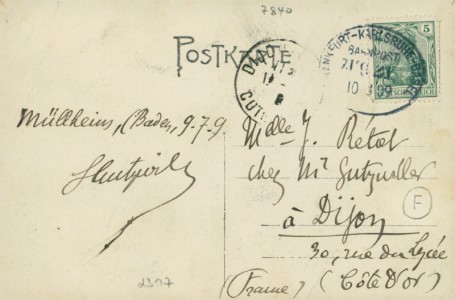 7840
POSTKARTE
FRANKFURT-KARLSRUHE-BASEL
BAHNPOST
ZUG 21
10 09
5
DEUTSCHES REICH
Müllheim, (Baden, 9-7-9
Melle J. Rétat
chez Mr Gutzwiller
à Dijon
F
30, rue du Lycée
(France) (Côte d'Or)